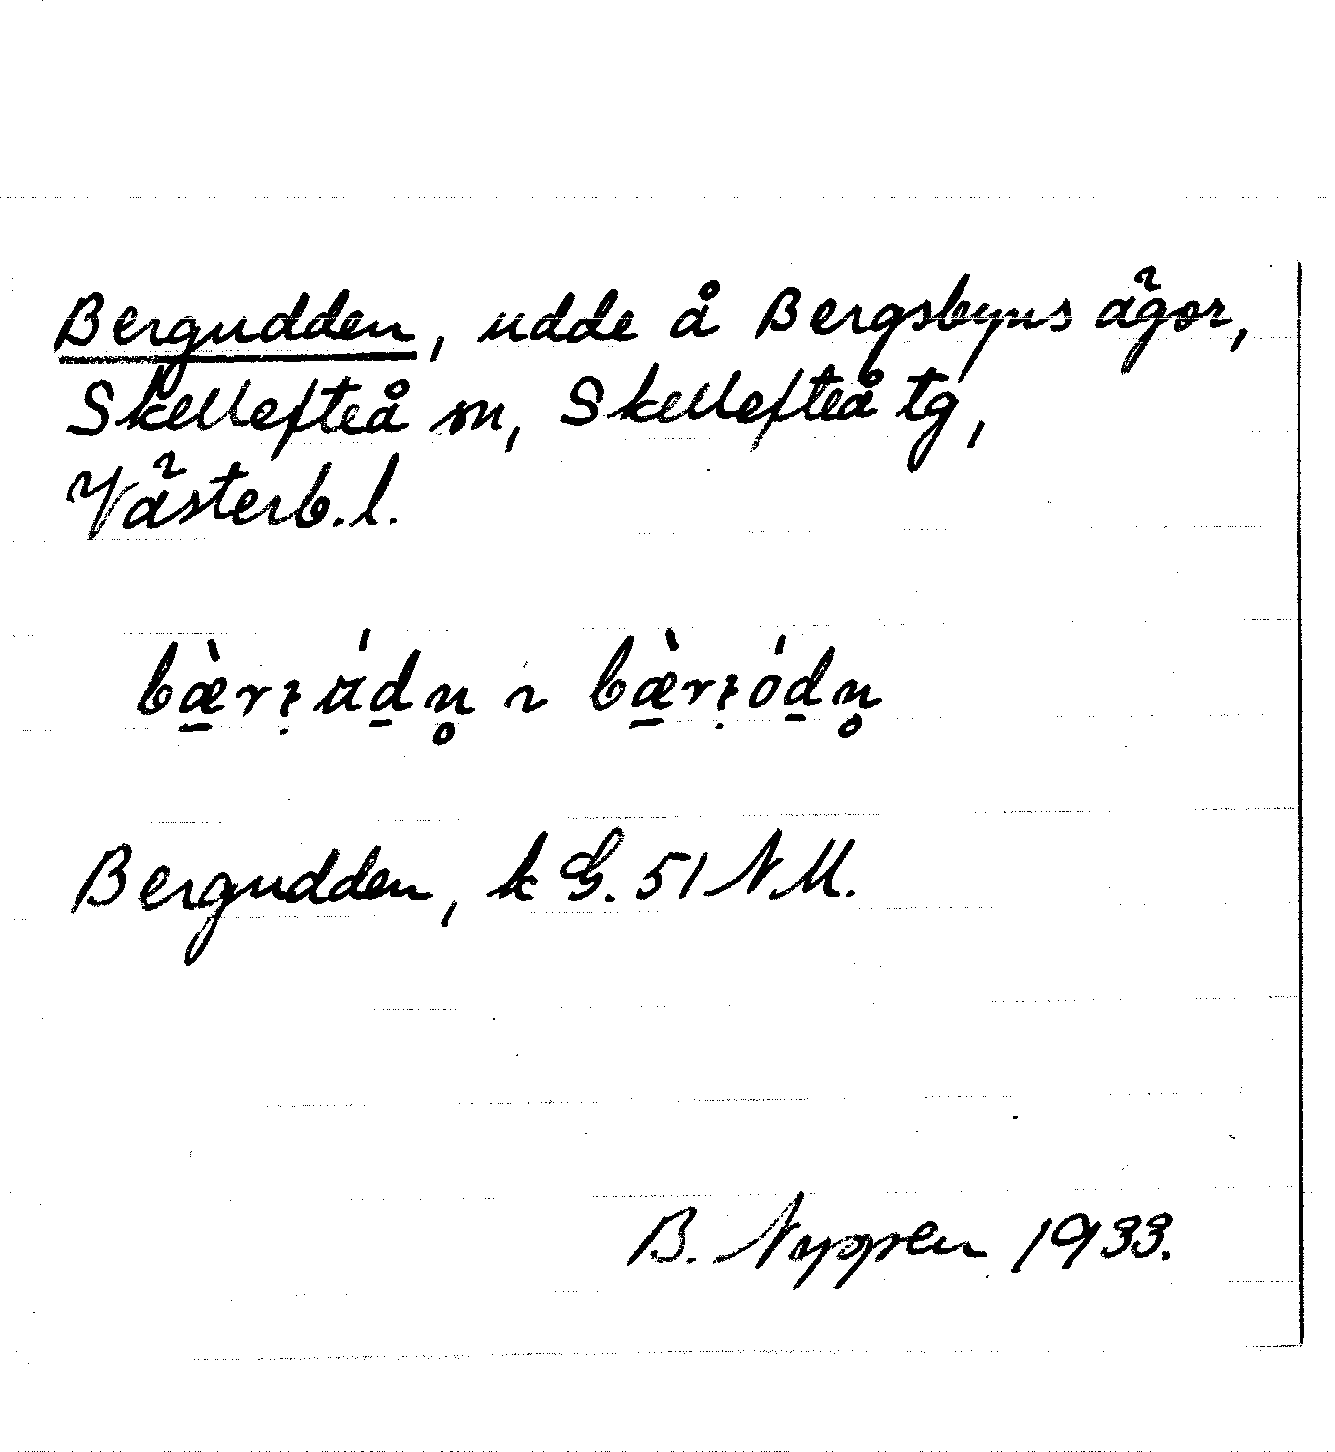 Bergudden, udde å Bergsbyns ägor,
Skellefteå sn, Skellefteå tg,
Västerb. l.
Bergudden, k G. 51 NM.
B. Nyppen 1933.